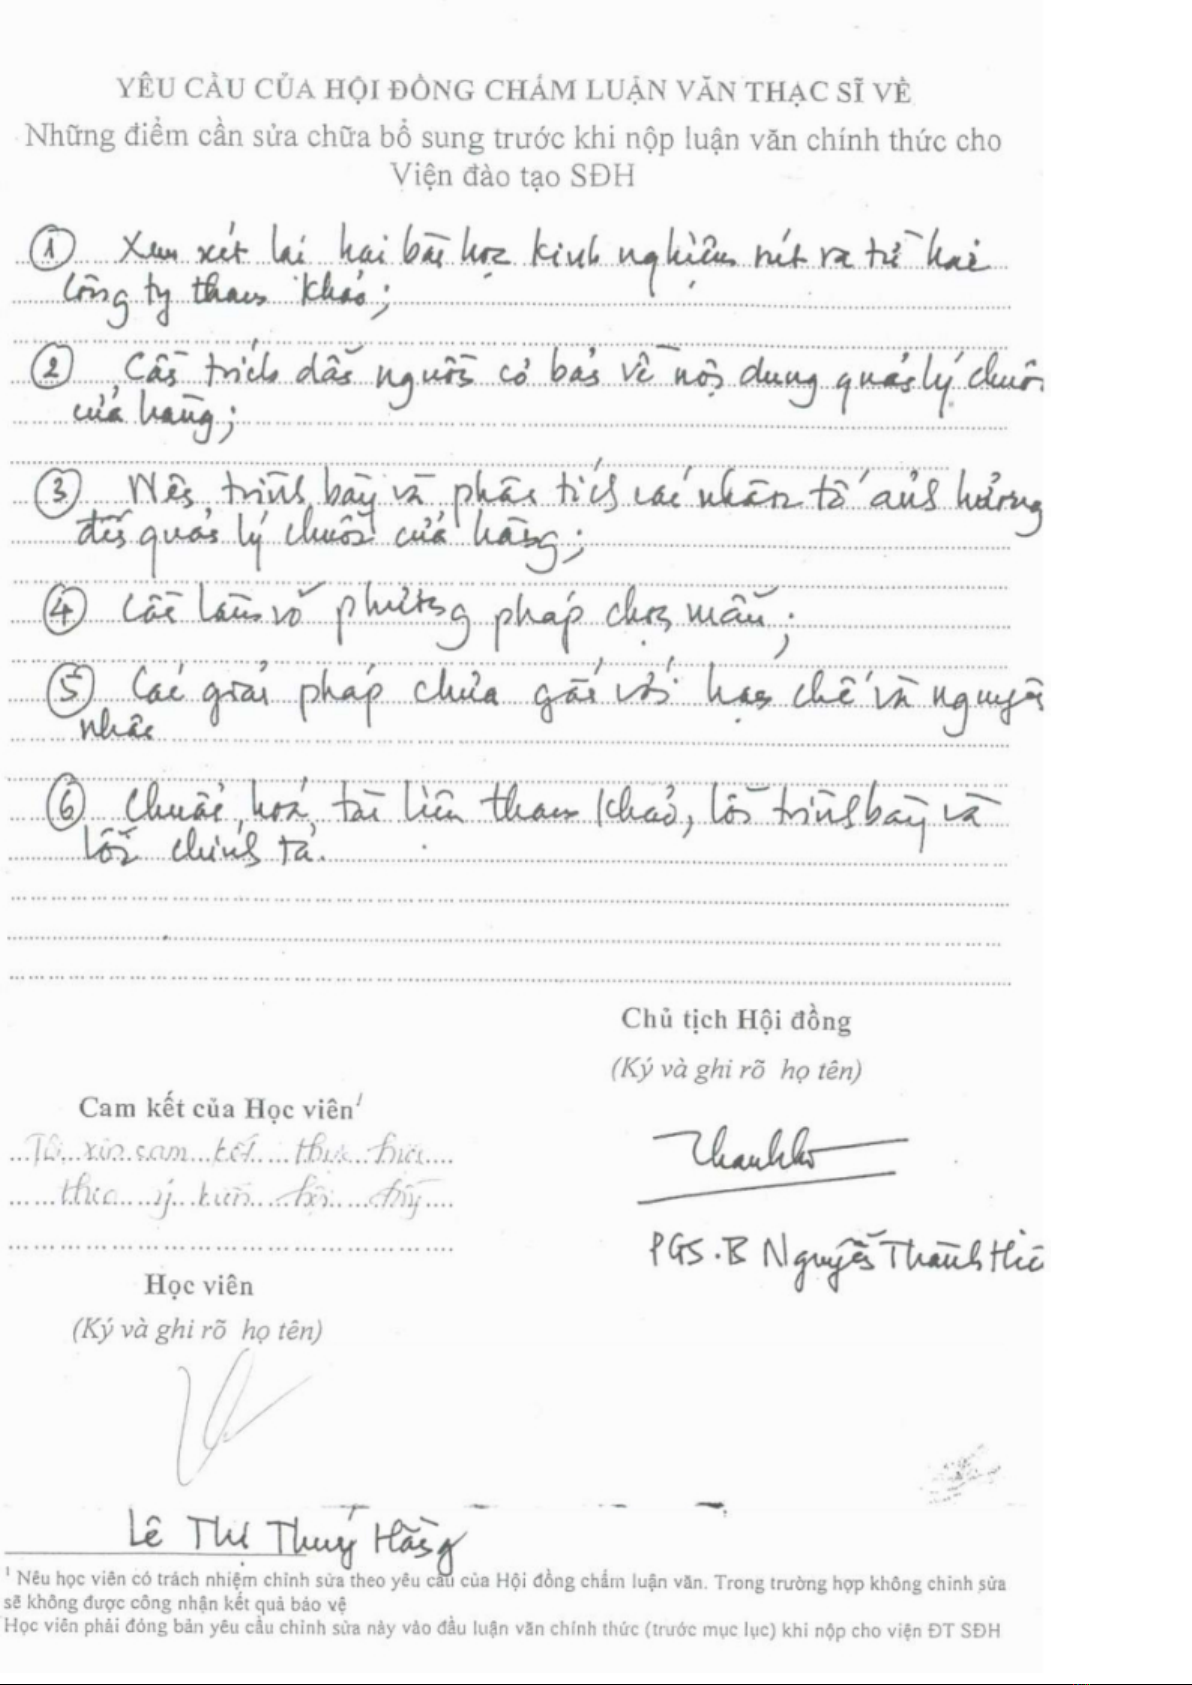 YÊU CẦU CỦA HỘI ĐỒNG CHẤM LUẬN VĂN THẠC SĨ VỀ
Những điểm cần sửa chữa bổ sung trước khi nộp luận văn chính thức cho
Viện đào tạo SĐH
① Xem xét lại hai bài học kinh nghiệm rút ra từ hai
công ty tham khảo;
② Cần trích dẫn nguồn cơ bản về nội dung quản lý chuỗi
cửa hàng;
③ Nên trình bày và phân tích các nhân tố ảnh hưởng
đến quản lý chuỗi cửa hàng;
④ Cần làm rõ phương pháp chọn mẫu;
⑤ Các giải pháp chưa gắn với hạn chế và nguyên
nhân
⑥ Chuẩn hoá tài liệu tham khảo, lỗi trình bày và
lỗi chính tả.
Chủ tịch Hội đồng
(Ký và ghi rõ họ tên)
Cam kết của Học viên¹
Tôi xin cam kết thực hiện
theo ý kiến hội đồng
PGS.TS Nguyễn Thành
Học viên
(Ký và ghi rõ họ tên)
Lê Thị Thuý Hằng
¹ Nếu học viên có trách nhiệm chỉnh sửa theo yêu cầu của Hội đồng chấm luận văn. Trong trường hợp không chỉnh sửa
sẽ không được công nhận kết quả bảo vệ
Học viên phải đóng bản yêu cầu chỉnh sửa này vào đầu luận văn chính thức (trước mục lục) khi nộp cho viện ĐT SĐH